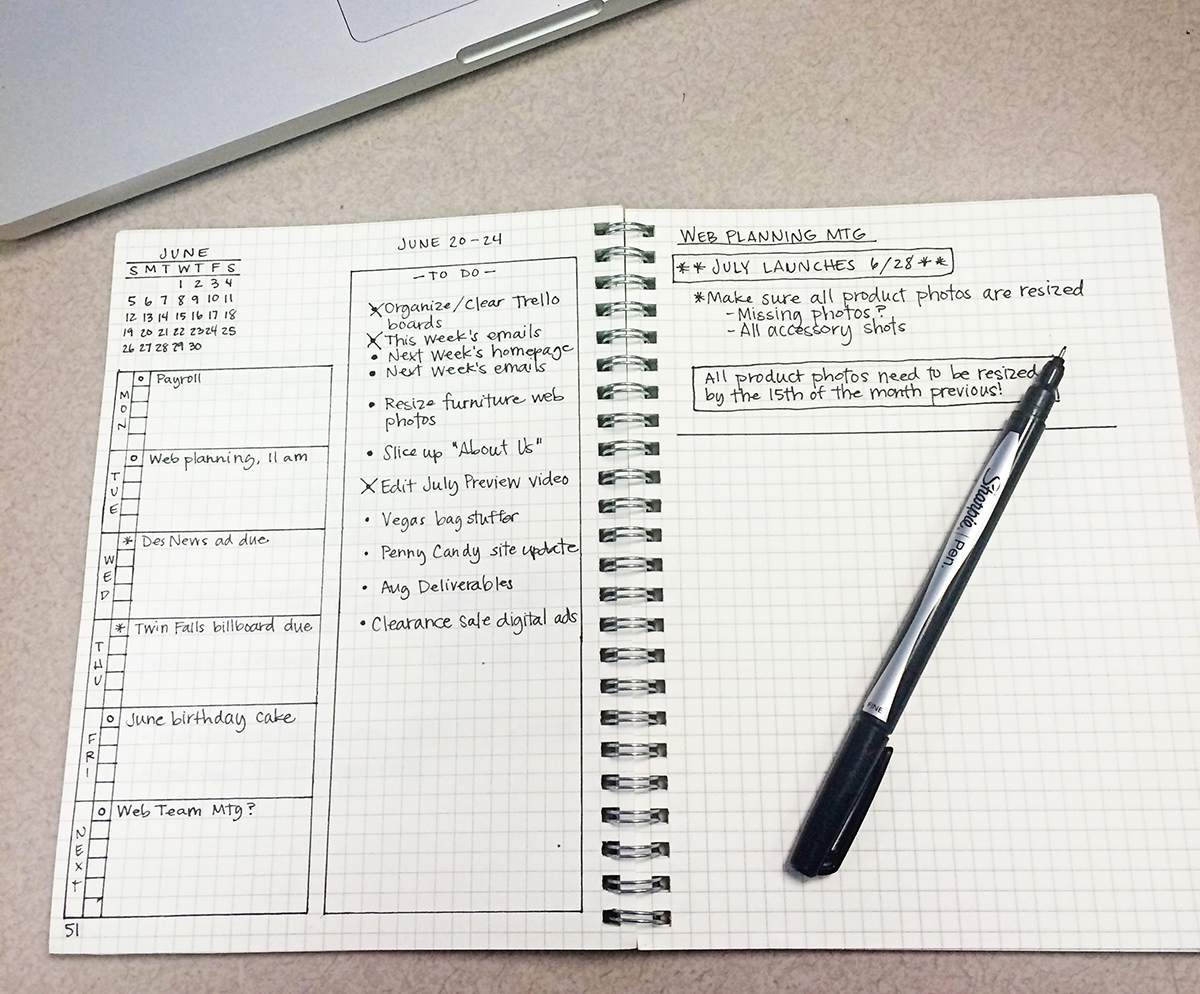 JUNE
S M T W T F S
1 2 3 4
5 6 7 8 9 10 11
12 13 14 15 16 17 18
19 20 21 22 23 24 25
26 27 28 29 30
MON
Payroll
TUE
Web planning, 11 am
WED
* Des News ad due
THU
* Twin Falls billboard due
FRI
June birthday cake
NEXT
Web Team Mtg?
51
JUNE 20-24
- TO DO -
Organize/Clear Trello
boards
This Week's emails
• Next Week's homepage
• Next Week's emails
• Resize furniture web
photos
• Slice up "About Us"
Edit July Preview video
• Vegas bag stuffer
• Penny Candy site update
• Aug Deliverables
• Clearance Sale digital ads
WEB PLANNING MTG
** JULY LAUNCHES 6/28 **
*Make sure all product photos are resized
- Missing photos?
- All accessory shots
All product photos need to be resized
by the 15th of the month previous!
Sharpie. Pen.
FINE